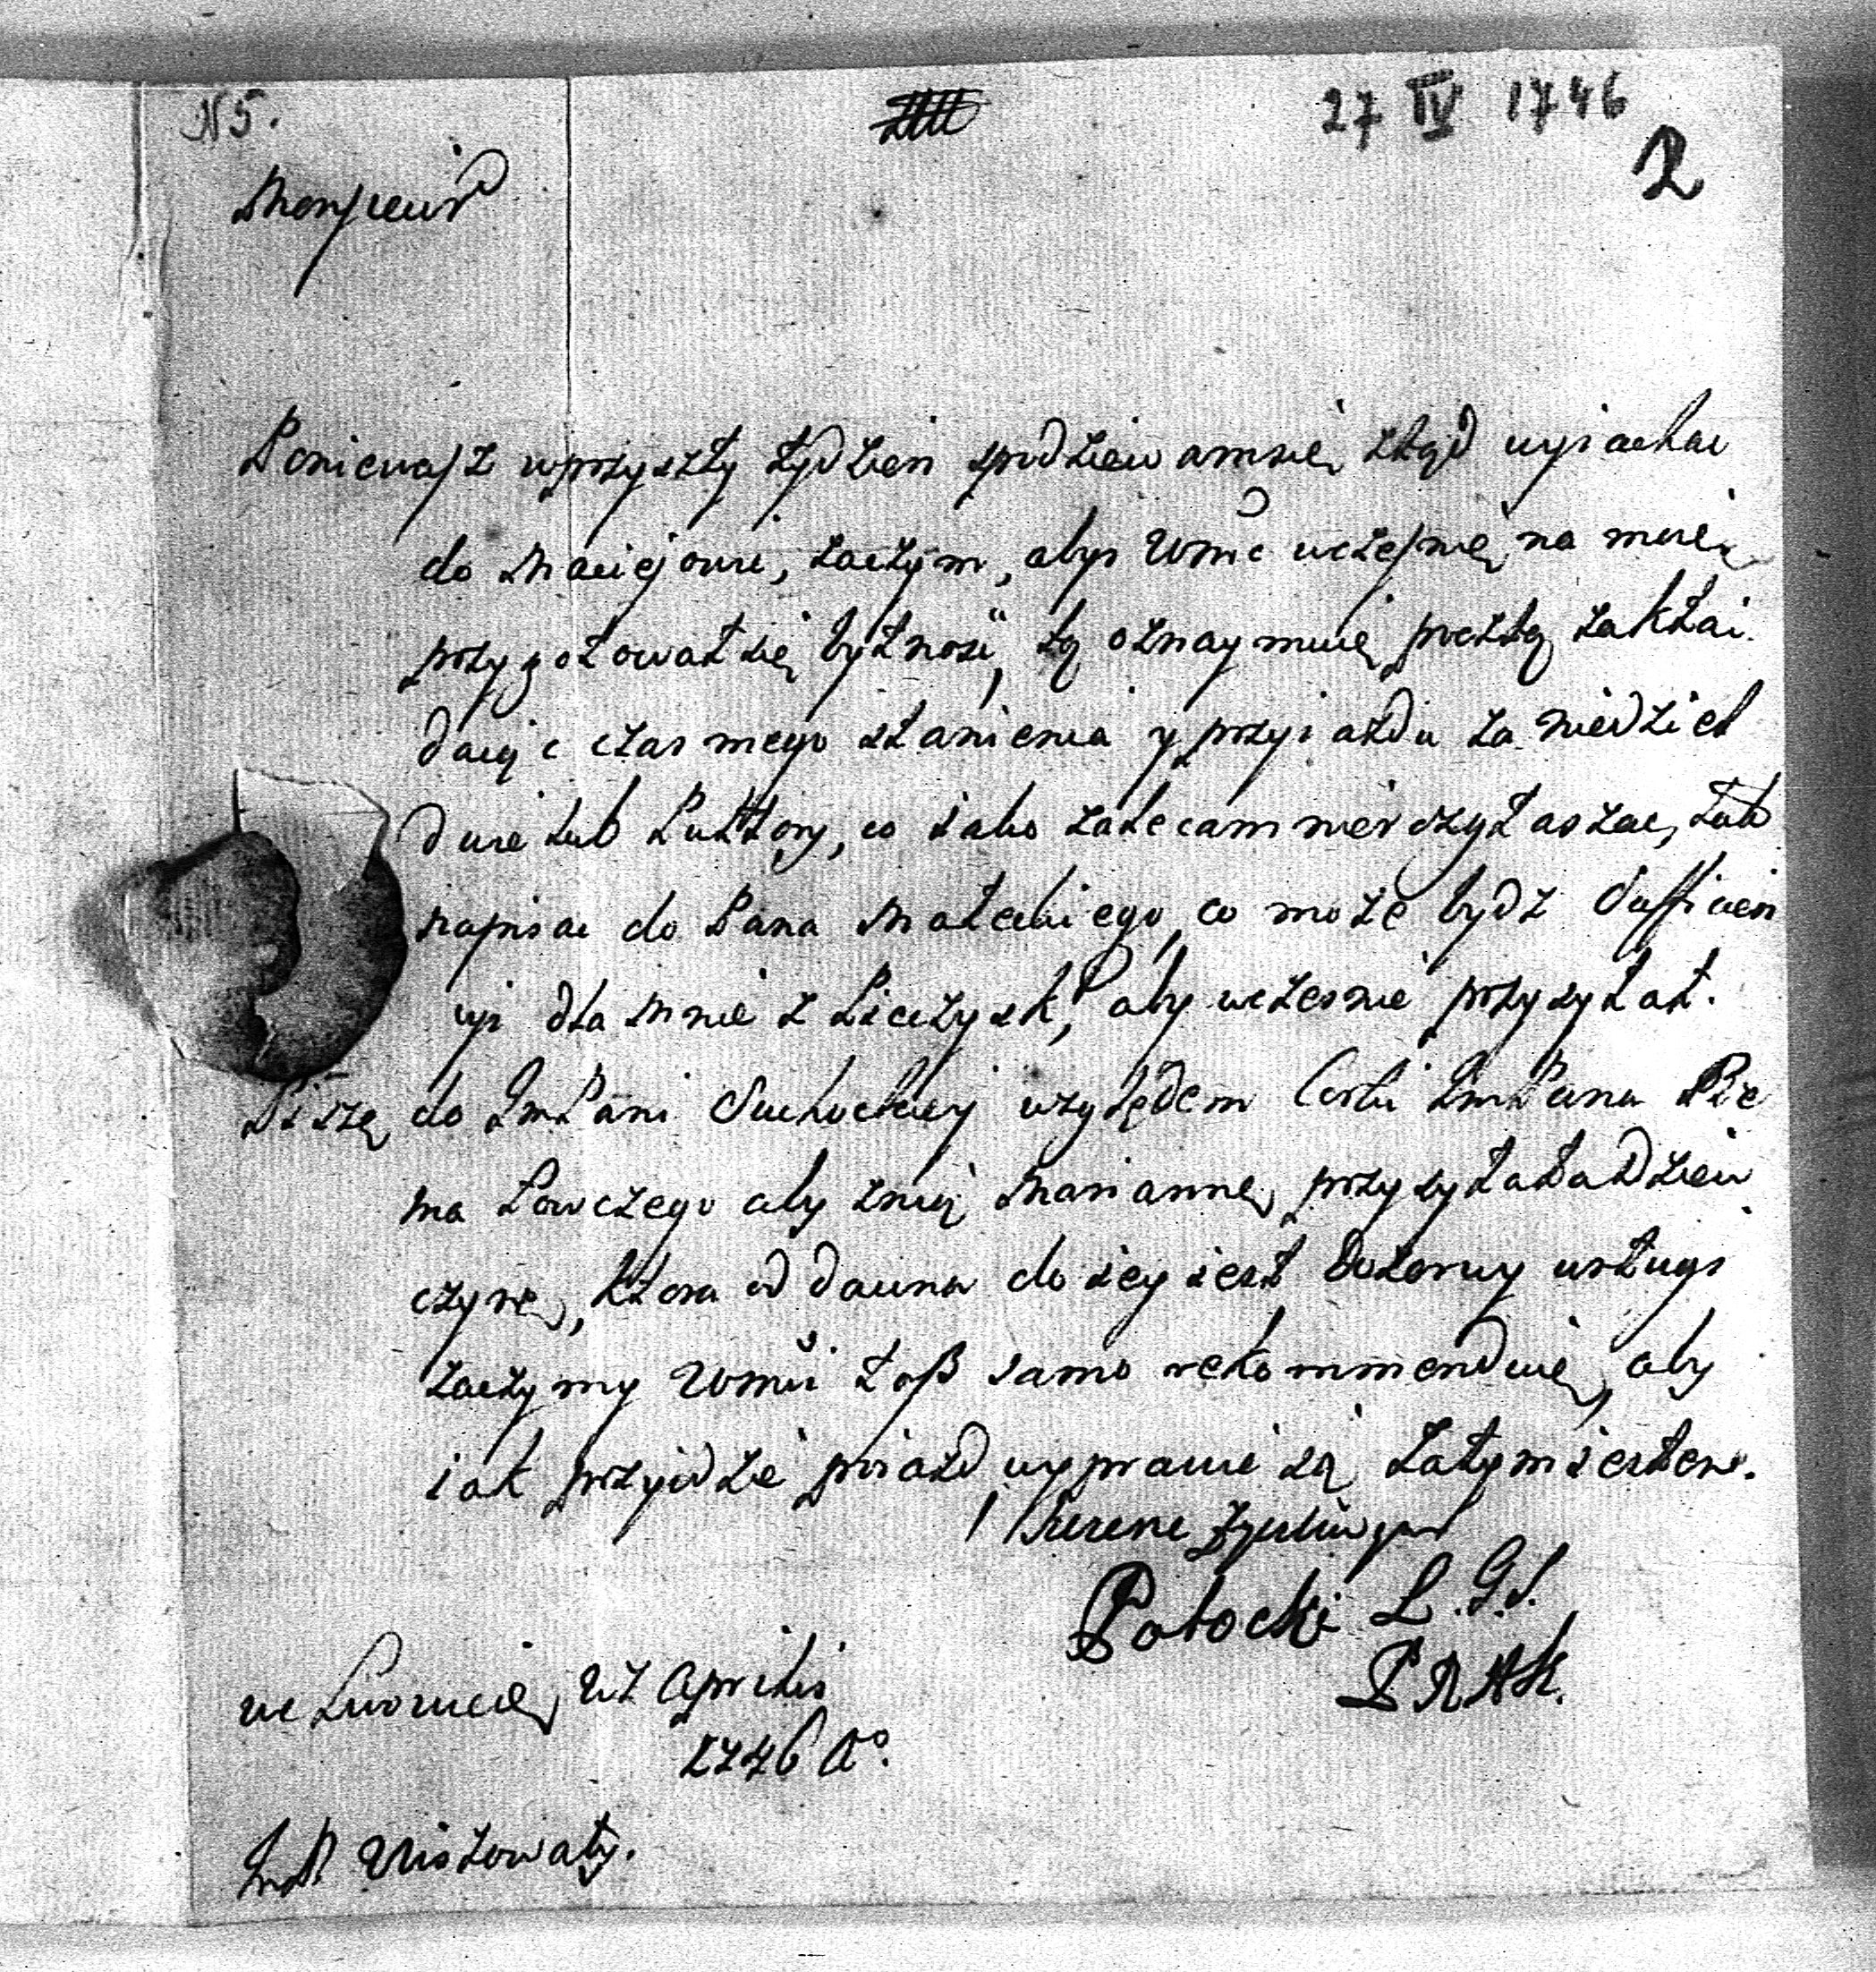 N5.
27 IV 1746
2
Monsieur
Poniewasz wprzyszły tydzien spodziewamsię ztąd wyiachac
do Maciejowa, zaczym, abys Wmć wczesnie na moię
przygotował się bytnosć, tą oznaymuię pocztą zakłai
daiąc czas mego stanienia y przyiazdu za niedziel
dwie lub półtory, co iako zalecam
napisac do Pana Małeckiego, co może bydz Sufficien
cyi dla mnie z aby wczesnie przysyłał.
Piszę do ImPani Suchockiey względem Corki ImPana Ple
ma Łowczego aby znią Mariannę przysyłała dziew
czynę, ktora od dawna do iey iest usługi
zaczym y Wmci toß samo rekommenduię, aby
iak przyidzie poiazd, wyprawić ią Zatym iestem.
szczerze życzliwym
Potocki
we Lwowie, 27 Aprilis
1746 Aº.
ImP. Wiszowaty.